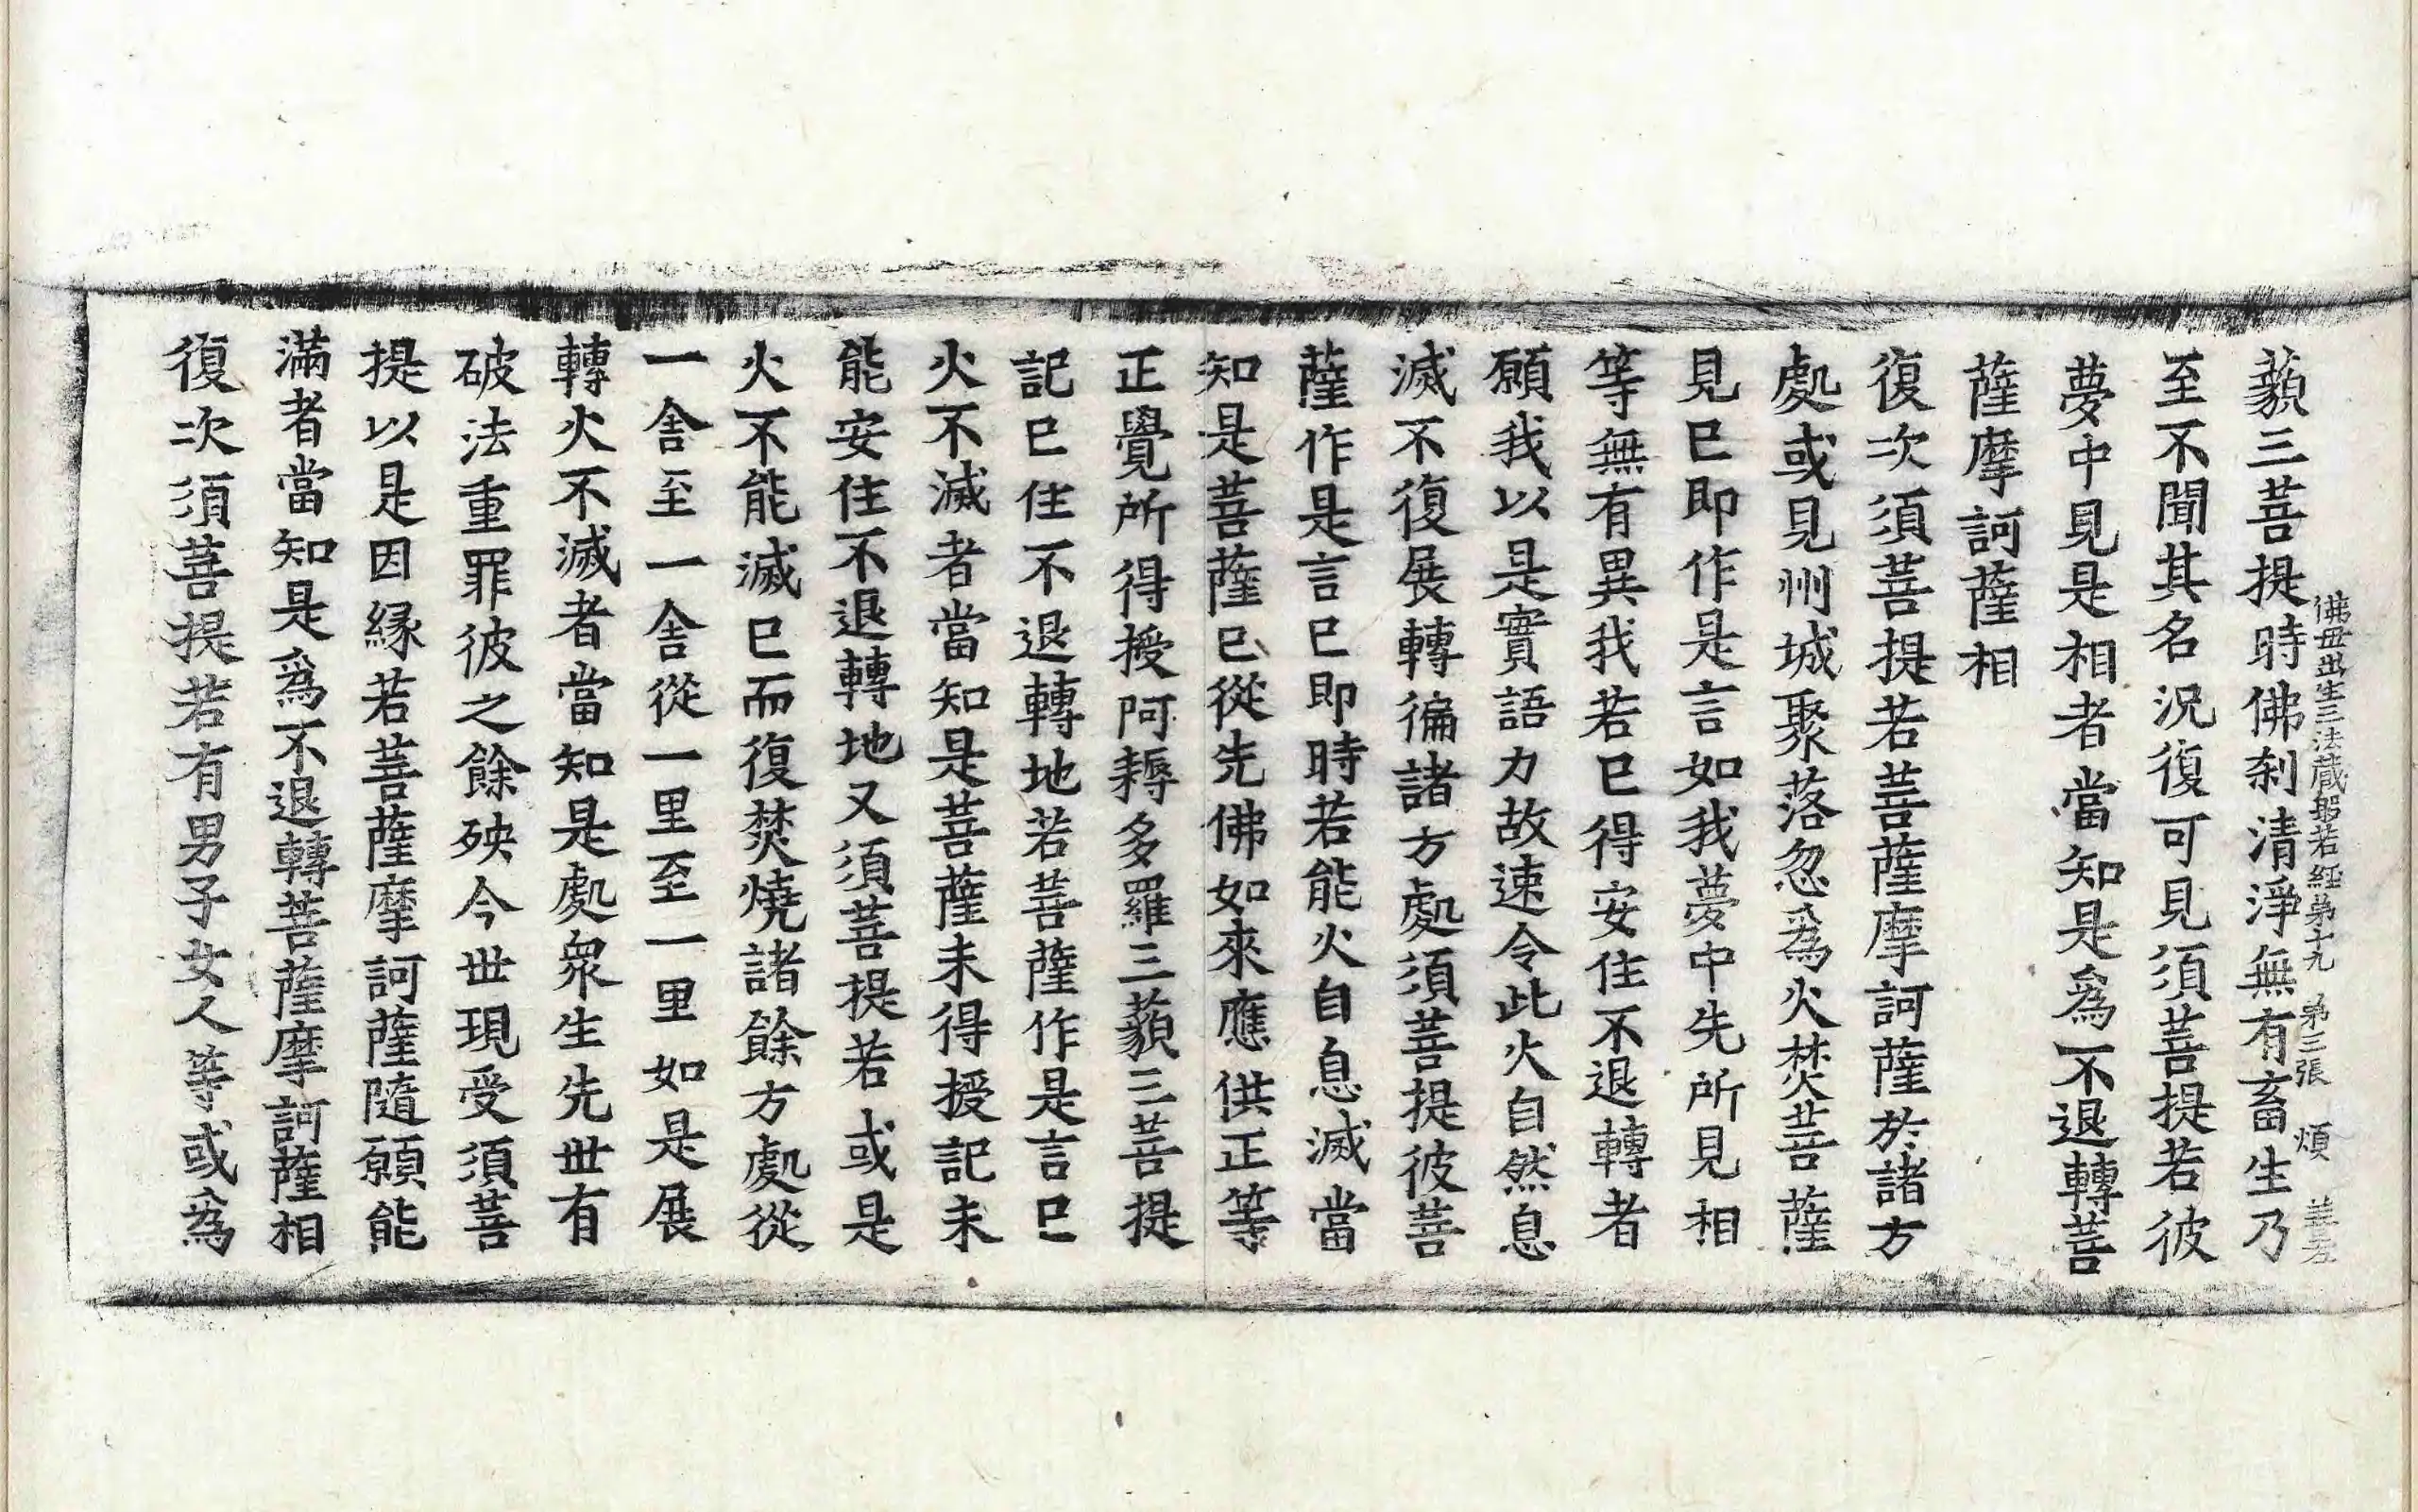 佛母出生三法藏般若經第十九　第三張　煩
藐三菩提時佛刹清淨無有畜生乃
至不聞其名况復可見須菩提若彼
夢中見是相者當知是爲不退轉菩
薩摩訶薩相
復次須菩提若菩薩摩訶薩於諸方
處或見州城聚落忽爲火焚菩薩
見已即作是言如我夢中先所見相
等無有異我若已得安住不退轉者
願我以是實語力故速令此火自然息
滅不復展轉徧諸方處須菩提彼菩
薩作是言已即時若能火自息滅當
知是菩薩已從先佛如來應供正等
正覺所得授阿耨多羅三藐三菩提
記已住不退轉地若菩薩作是言已
火不滅者當知是菩薩未得授記未
能安住不退轉地又須菩提若或是
火不能滅已而復焚燒諸餘方處從
一舍至一舍從一里至一里如是展
轉火不滅者當知是處衆生先世有
破法重罪彼之餘殃今世現受須菩
提以是因緣若菩薩摩訶薩隨願能
滿者當知是爲不退轉菩薩摩訶薩相
復次須菩提若有男子女人等或爲